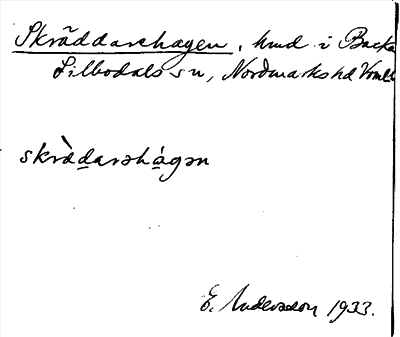 Skräddarehagen, hmd i Backa
Silbodals sn, Nordmarks hd Vrml
skrädarehágən
E. Andersson 1933.